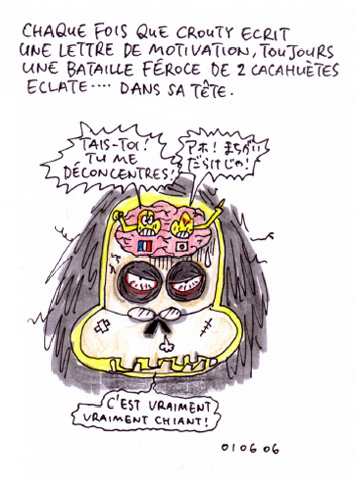 CHAQUE FOIS QUE CROUTY ECRIT
UNE LETTRE DE MOTIVATION, TOUJOURS
UNE BATAILLE FÉROCE DE 2 CACAHUÈTES
ECLATE.... DANS SA TÊTE.
TAIS-TOI!
TU ME
DÉCONCENTRES!
アホ! まちがい
だらけじゃ!
C'EST VRAIMENT
VRAIMENT CHIANT!
01 06 06